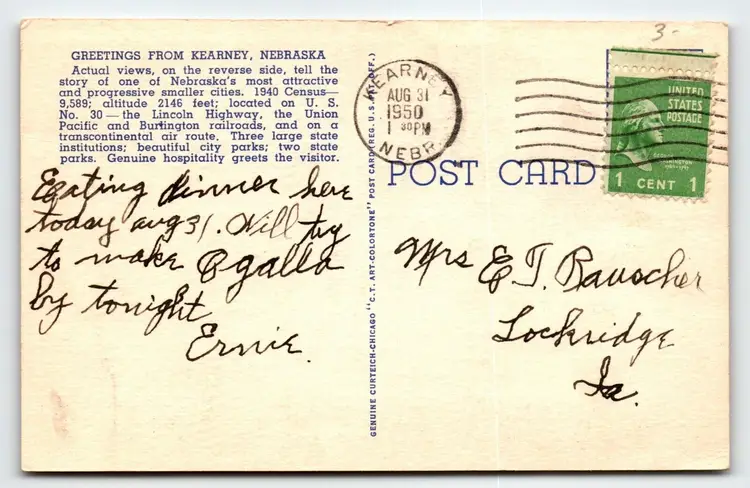 3-
GREETINGS FROM KEARNEY, NEBRASKA
Actual views, on the reverse side, tell the
story of one of Nebraska's most attractive
and progressive smaller cities. 1940 Census—
9,589; altitude 2146 feet; located on U. S.
No. 30 — the Lincoln Highway, the Union
Pacific and Burlington railroads, and on a
transcontinental air route. Three large state
institutions; beautiful city parks; two state
parks. Genuine hospitality greets the visitor.
Eqating dinner here
today aug 31. Will try
to make Ogalla
by tonight
Ernie.
GENUINE CURTEICH-CHICAGO "C.T. ART-COLORTONE" POST CARD (REG. U.S. PAT. OFF.)
KEARNEY
AUG 31
1950
1 30 PM
NEBR.
UNITED
STATES
POSTAGE
1 CENT 1
POST CARD
Mrs E J. Rauscher
Lockridge
Ia.